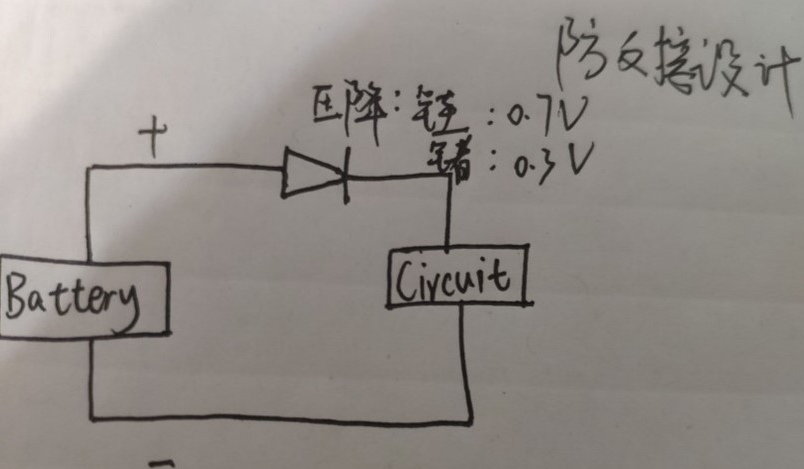 防反接设计
压降：硅：0.7V
锗：0.3V
+
Battery
Circuit
-